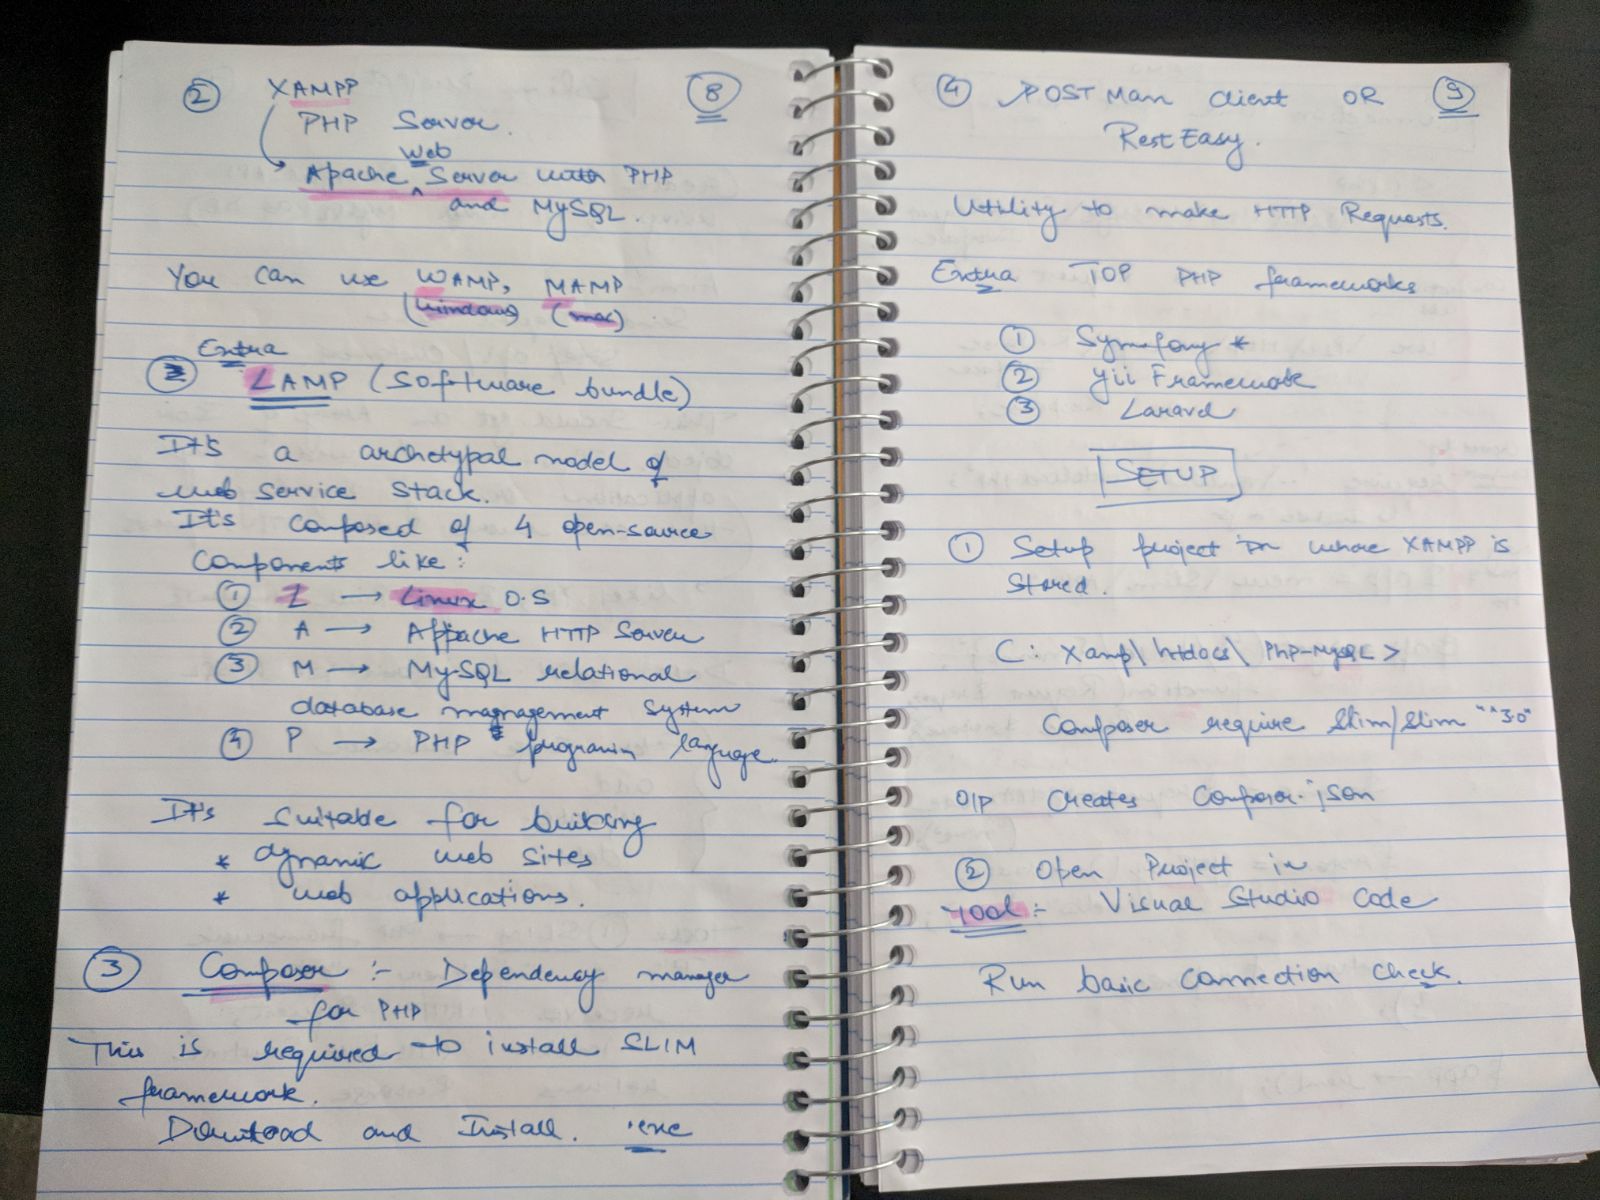 ② XAMPP ⑧
PHP Server.
Web
Apache ^ Server with PHP
and MySQL.
You can use WAMP, MAMP
(windows) (mac)
Extra
② LAMP (Software bundle)
It's a archetypal model of
web service stack.
It's composed of 4 open-source
components like:
① L → Linux O.S
② A → Appache HTTP Server
③ M → MySQL relational
database magnagement system
④ P → PHP programin language
It's suitable for building
* dynamic web sites
* web applications.
③ Composer :- Dependency manager
for PHP
This is required to install SLIM
framework.
Download and Install. .exe
④ POSTMan client OR ⑨
Rest Easy.
Utility to make HTTP Requests.
Extra TOP PHP frameworks
① Symfony *
② yii Framework
③ Laravel
SETUP
① Setup project in where XAMPP is
stored.
C: Xamp\htdocs\ PhP-MySQL>
Composer require slim/slim "^3.0"
O/P creates Composer.json
② Open Project in
Tool:- Visual Studio Code
Run basic connection check.